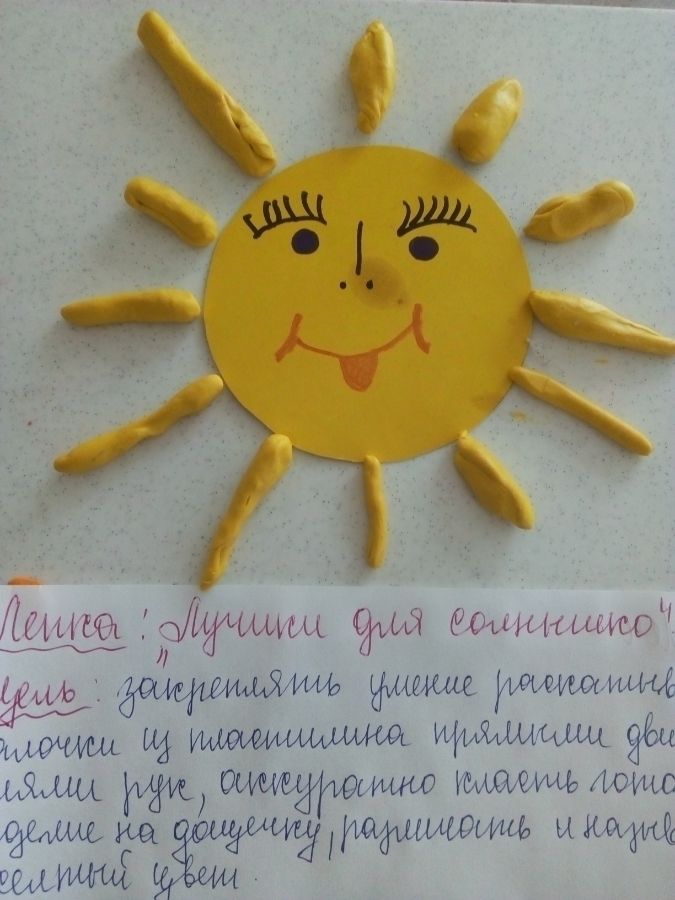 Лепка: "Лучики для солнышко".
Цель: закреплять умение раскатыв
алочки из пластилина прямыми дви
иями рук, аккуратно класть гото
делие на дощечку, различать и назыв
желтый цвет.